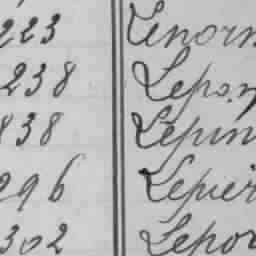 223 Lenorm
238 Lepon
838 Lepin
296 Lepier
302 Lepor